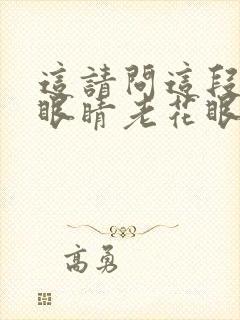 這請問這段
眼睛老花眼
高勇